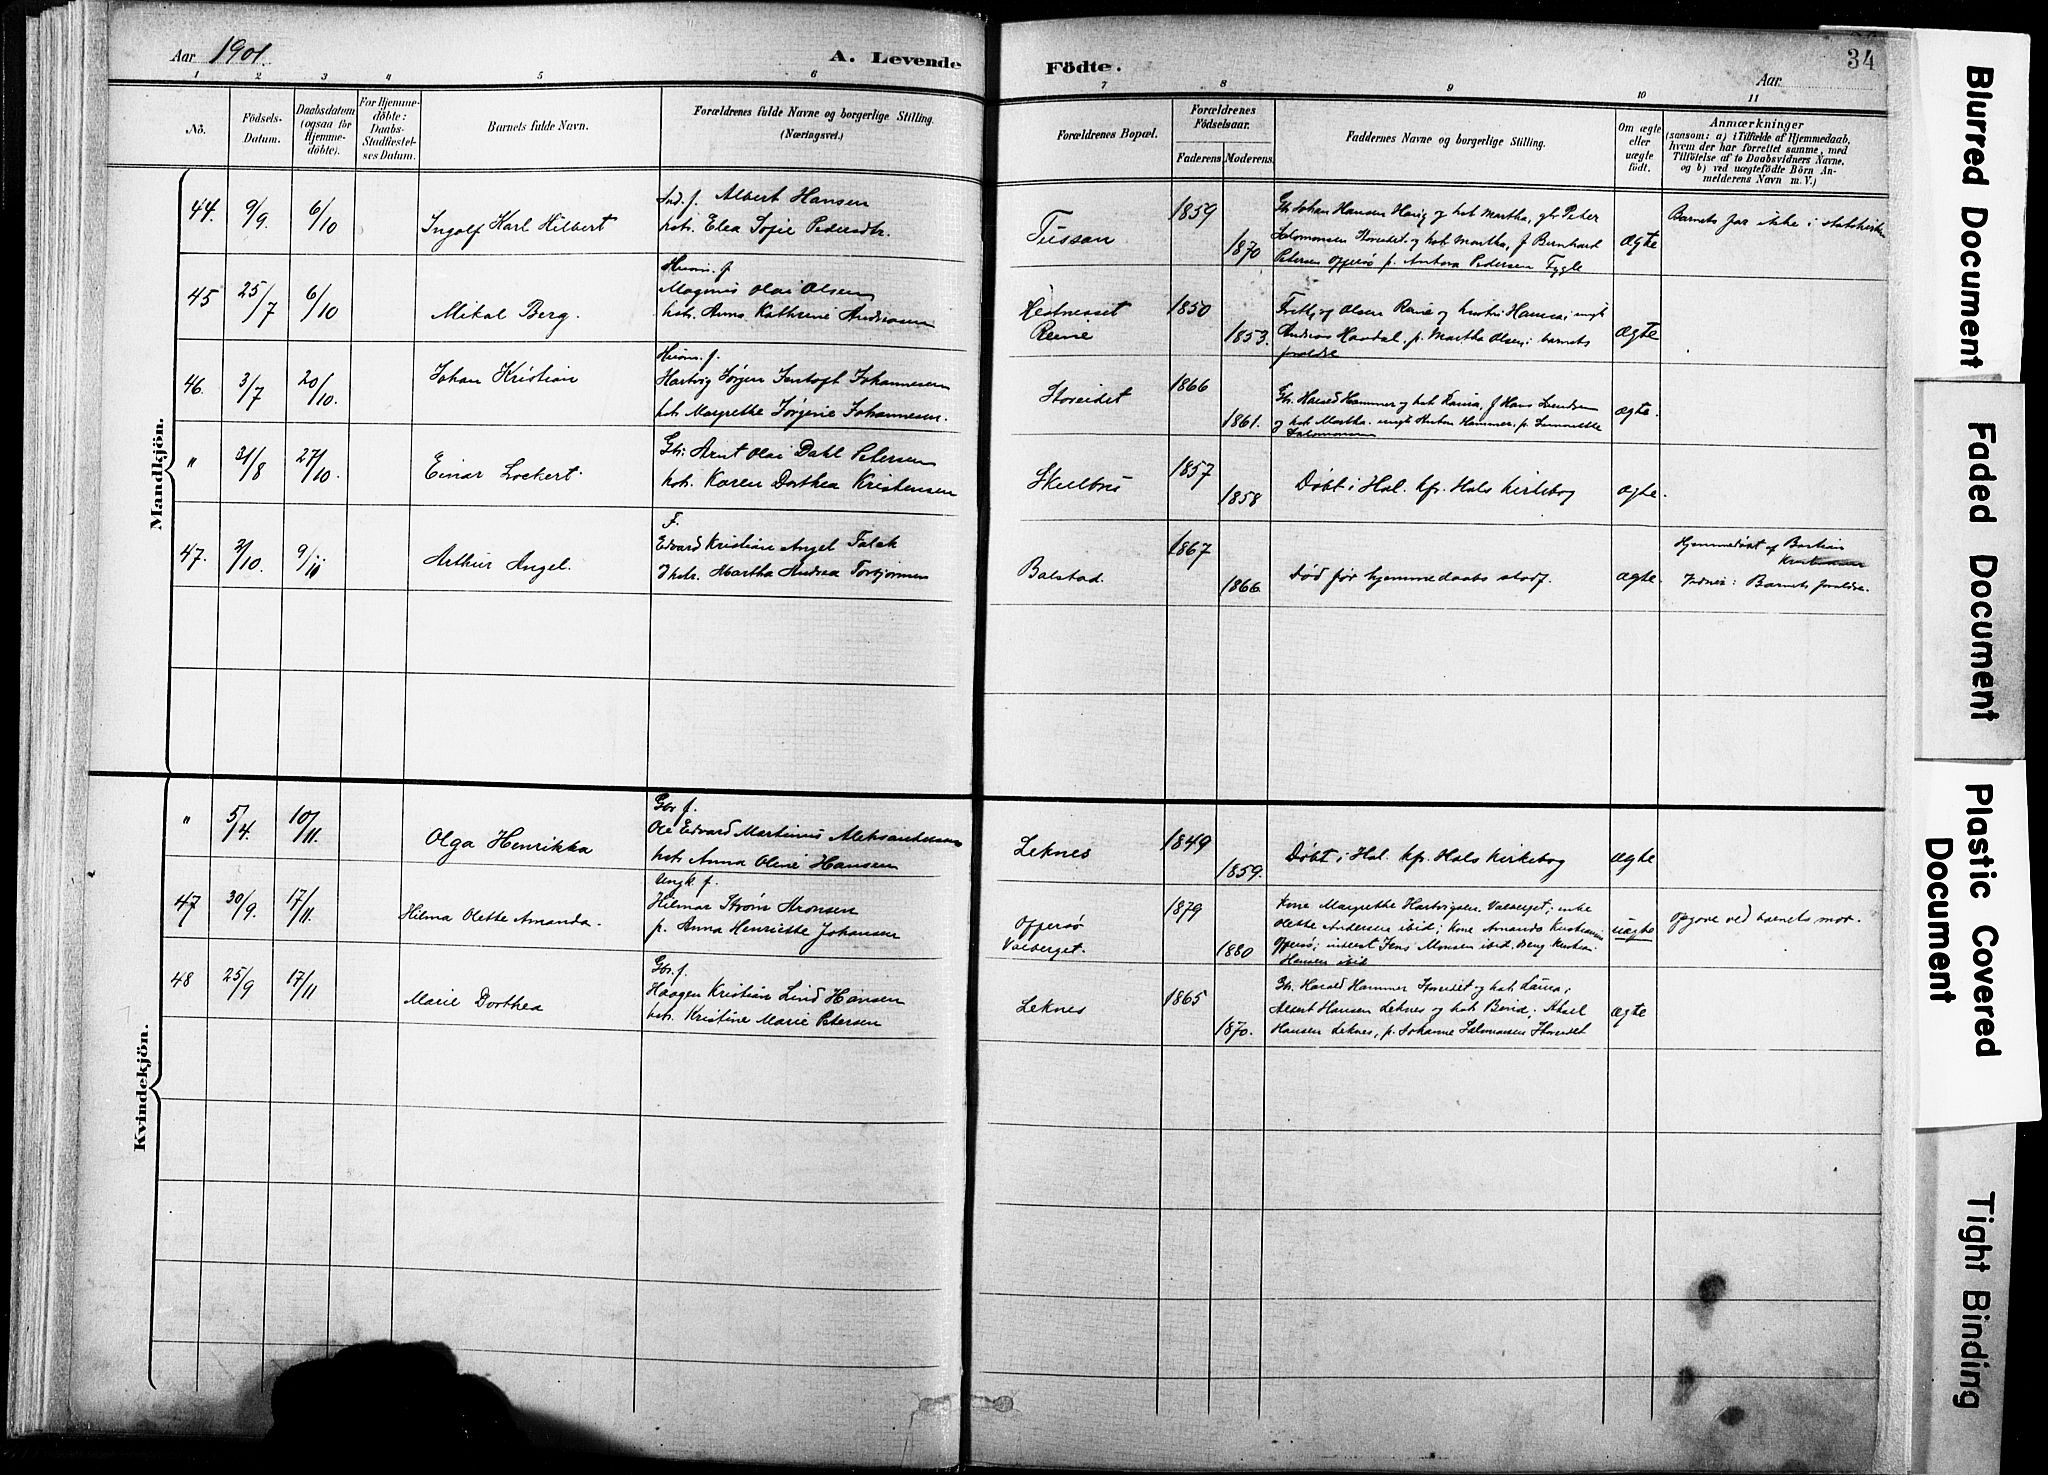 Aar 1901.
A. Levende
Födte.
Aar
34
1 2 3 4 5 6 7 8 9 10 11
No.
Födsels-
Datum.
Daabsdatum
(ogsaa for
Hjemme-
döbte).
For Hjemme-
döbte:
Daabs-
Stadfæstel-
ses Datum.
Barnets fulde Navn.
Forældrenes fulde Navne og borgerlige Stilling.
(Næringsvei.)
Forældrenes Bopæl.
Forældrenes
Födselsaar.
Faderens
Moderens.
Faddernes Navne og borgerlige Stilling.
Om ægte
eller
uægte
födt.
Anmærkninger
(saasom: a) i Tilfælde af Hjemmedaab,
hvem der har forrettet samme, med
Tilföielse af to Daabsvidners Navne.
og b) ved uægtefödte Börn An-
melderens Navn m. V.)
Mandkjön.
44. 9/9. 6/10
Ingolf Karl Hilbert
Ind. f. Albert Hansen
hstr. Elea Sofie Pedersdtr.
Tussan
1859
1870
Gbr. Johan Hansen Haug og hst. Martha, gbr. Peter
Salomonsen Storeidet og hst. Martha, f. Bernhard
Petersen Offersø p. Antora Pedersen Fygle
ægte
Barnets far ikke i statskirken
45 25/7 6/10
Mikal Berg.
Husm. f.
Magnus Olai Olsen
hstr. Anna Kathrine Andreasen
Reine
1850
1853.
Olsen Reine og hustru Hanna; ungk.
Andreas Haudal, p. Martha Olsen; barnets
foreldre
ægte
46. 3/7 20/10.
Johan Kristian
Husm. f.
Hartvig Jørgen Jentoft Johannesen
hst. Margrethe Jørgine Johannesen.
Storeidet
1866
1861.
Gbr. Harald Hammer og hst. Laura, f. Hans
og hst. Martha. ungk. Anton Hammer. p.
Salomonsen
ægte.
" 31/8 27/10.
Einar Lockert.
Gbr. Arnt Olai Dahl Petersen
hst. Karen Dorthea Kristensen
Skulbru
1857
1858
Døbt i Hol. kfr. Hols kirkebog
ægte.
47. 2/10. 9/11
Arthur Angel.
F.
Edvard Kristian Angel Falck
hstr. Martha Andrea Torbjørnsen
Balstad.
1867
1866.
Død før hjemmedaabs stadf.
ægte.
Hjemmedøbt af Bastian
Kristiansen
Vidner: Barnets foreldre.
Kvindekjön.
" 5/4. 10/11.
Olga Henrikka
Gbr f.
Ole Edvard Martinus Aleksandersen
hst. Anna Oline Hansen
Leknes
1849
1859.
Døbt i Hol. kfr. Hols kirkebog
ægte
47 30/9. 17/11.
Hilma Olette Amanda.
Ungk f.
Hilmar Strøm Aronsen
p. Anna Henriette Johansen
Offersø
Valberget.
1879
1880
Kone Margrethe Hartvigsen Valberget; enke
Olette Andersen ibid; Kone Amanda Kristiansen
Offersø; inderst Jens Monsen ibid. Kristian
Hansen ibid
uægte
Opgave ved barnets mor.
48 25/9 17/11
Marie Dorthea
Gbr. f.
Haagen Kristian Lind Hansen
hst. Kristine Marie Petersen
Leknes
1865
1870.
Gbr. Harald Hammer Storeidet og hst. Laura;
Albert Hansen Leknes og hst. Berid; Aksel
Hansen Leknes, p. Johanne Salomonsen Storeidet
ægte
Blurred Document
Faded Document
Plastic Covered
Document
Tight Binding